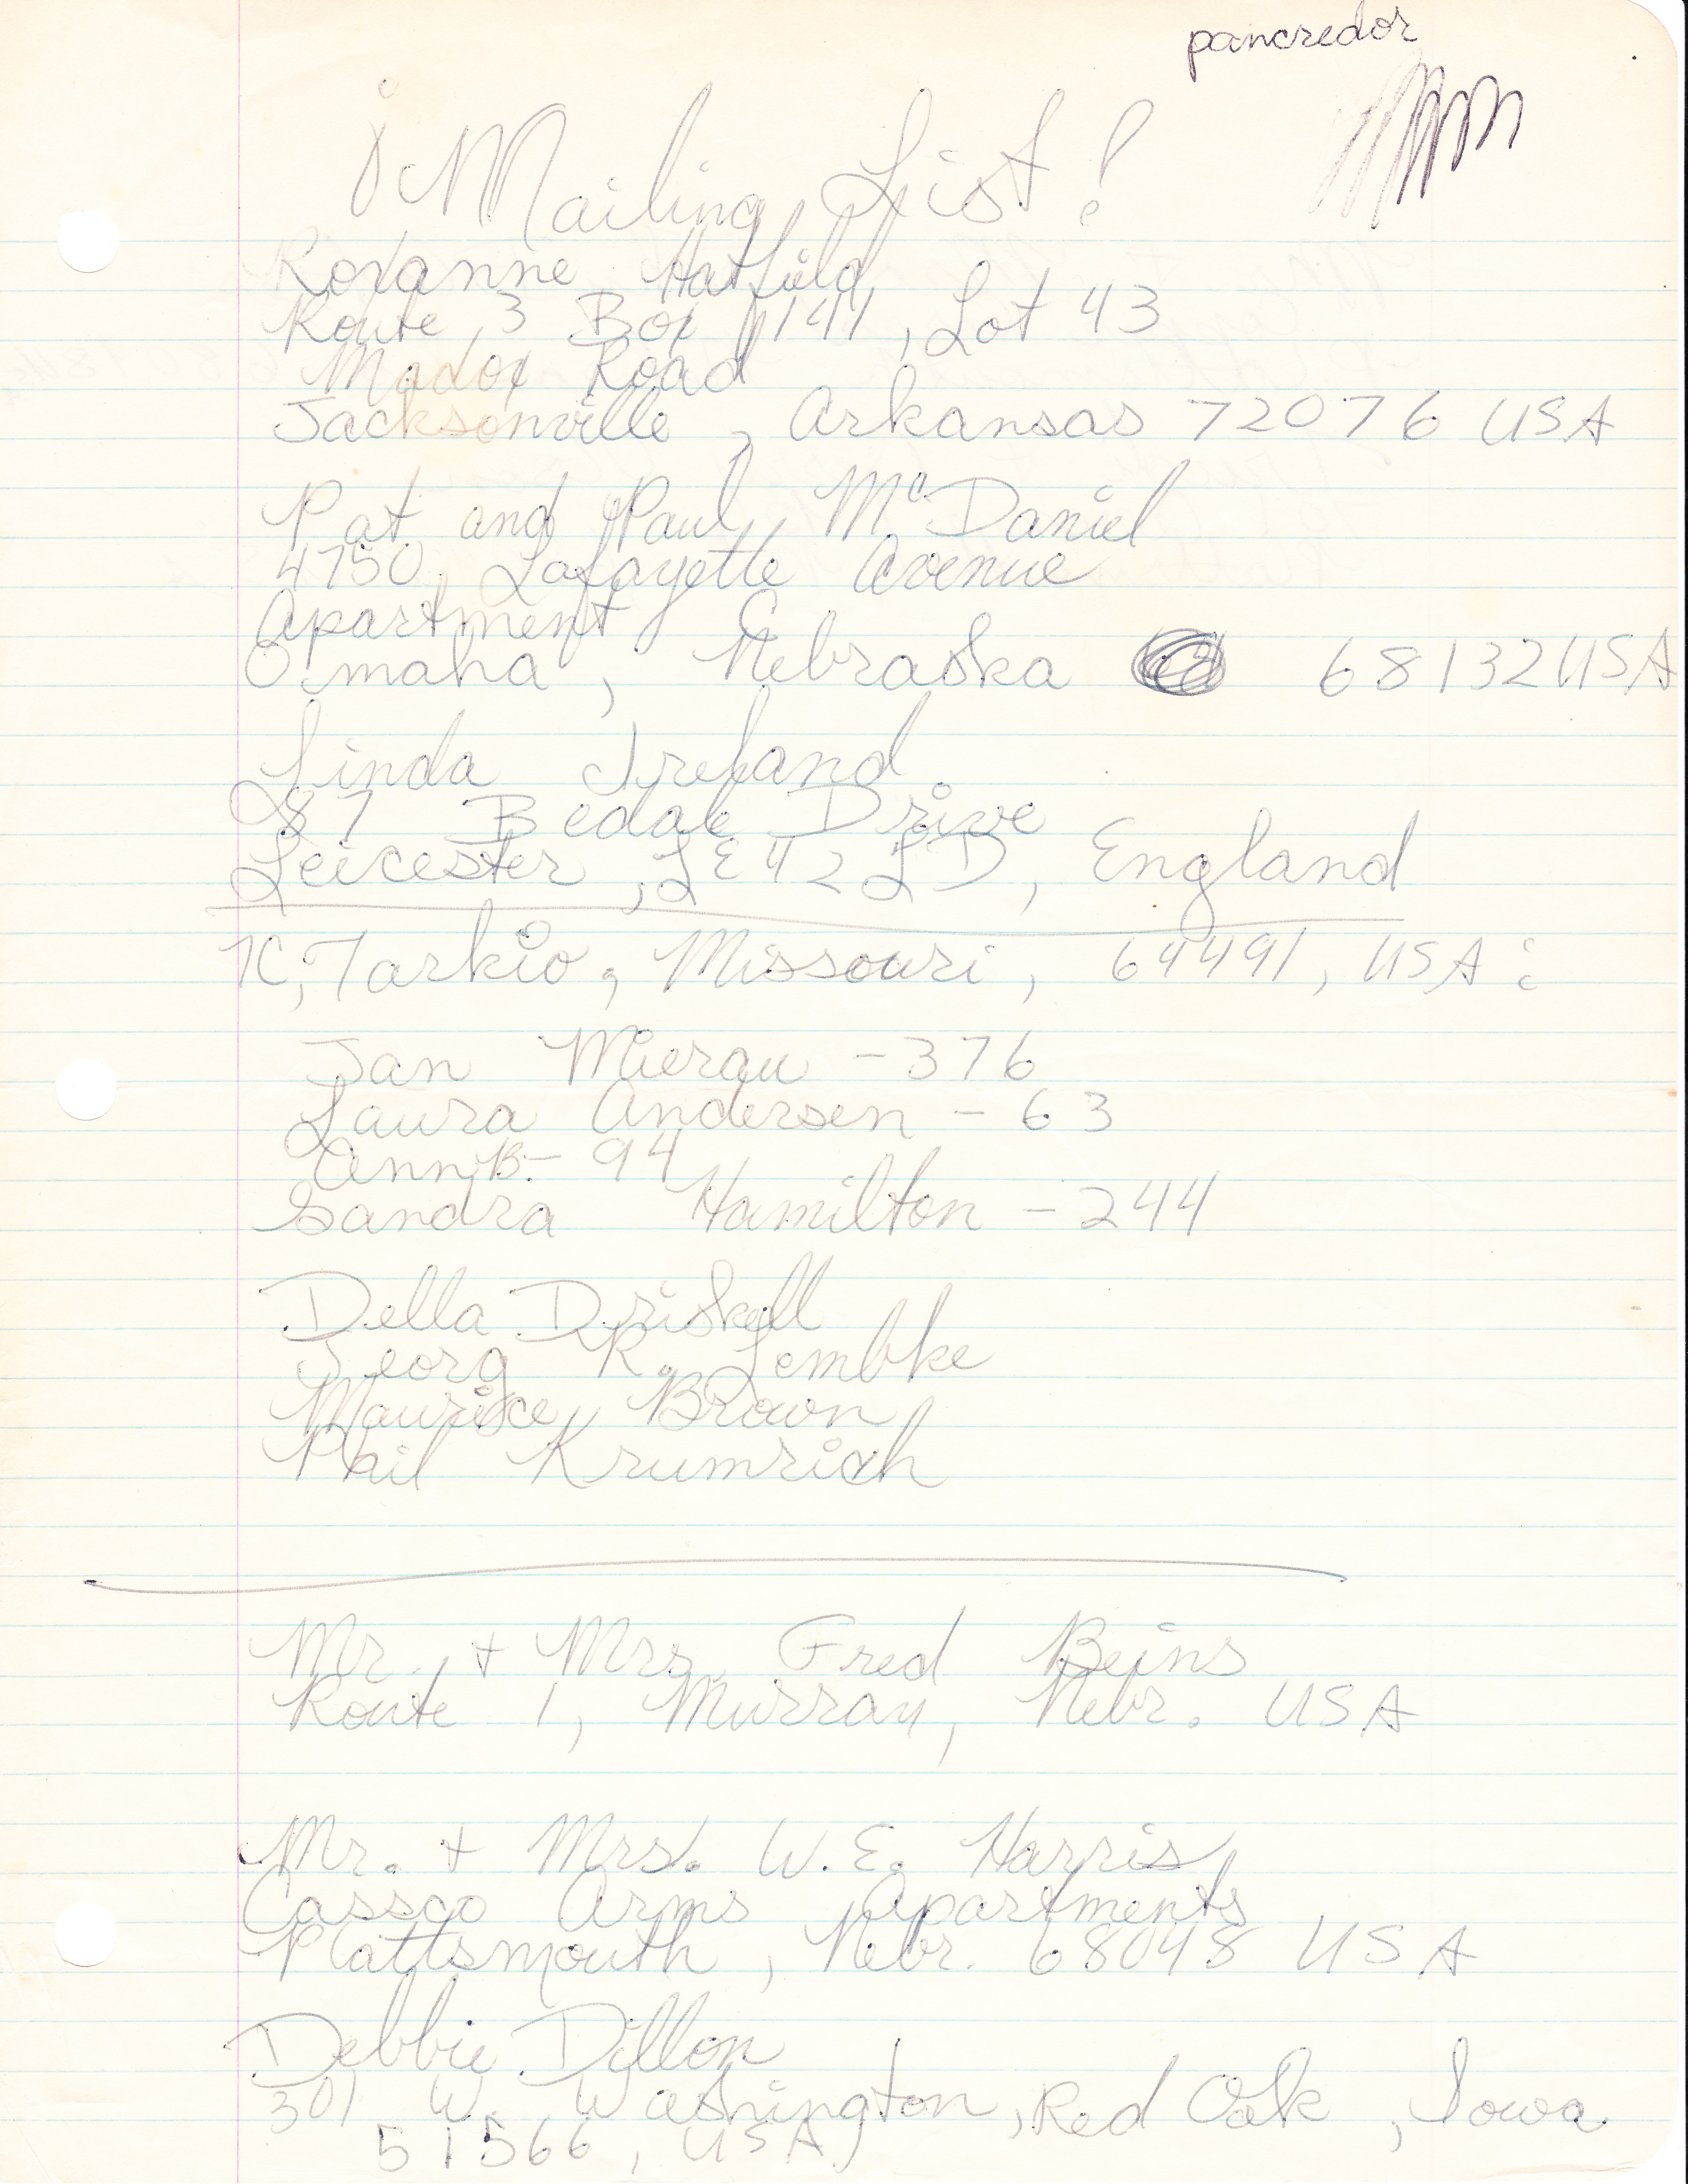 pancredor
¡Mailing List!
Roxanne Hatfield
Route 3 Box 1141, Lot 43
Madox Road
Jacksonville, Arkansas 72076 USA
Pat and Paul McDaniel
4750 Lafayette Avenue
Apartment C
Omaha, Nebraska 68132 USA
Linda Ireland
87 Bedale Drive
Leicester, LE4 2LD, England
TC, Tarkio, Missouri, 64491, USA:
Jan Mierau - 376
Laura Andersen - 63
Ann B. - 94
Sandra Hamilton - 244
Della Driskell
Georg R. Lembke
Maurice Brown
Phil Krumrich
Mr. + Mrs. Fred Beins
Route 1, Murray, Nebr. USA
Mr. + Mrs. W.E. Harris
Cassco Arms Apartments
Plattsmouth, Nebr. 68048 USA
Debbie Dillon
301 W. Washington, Red Oak, Iowa
51566, USA